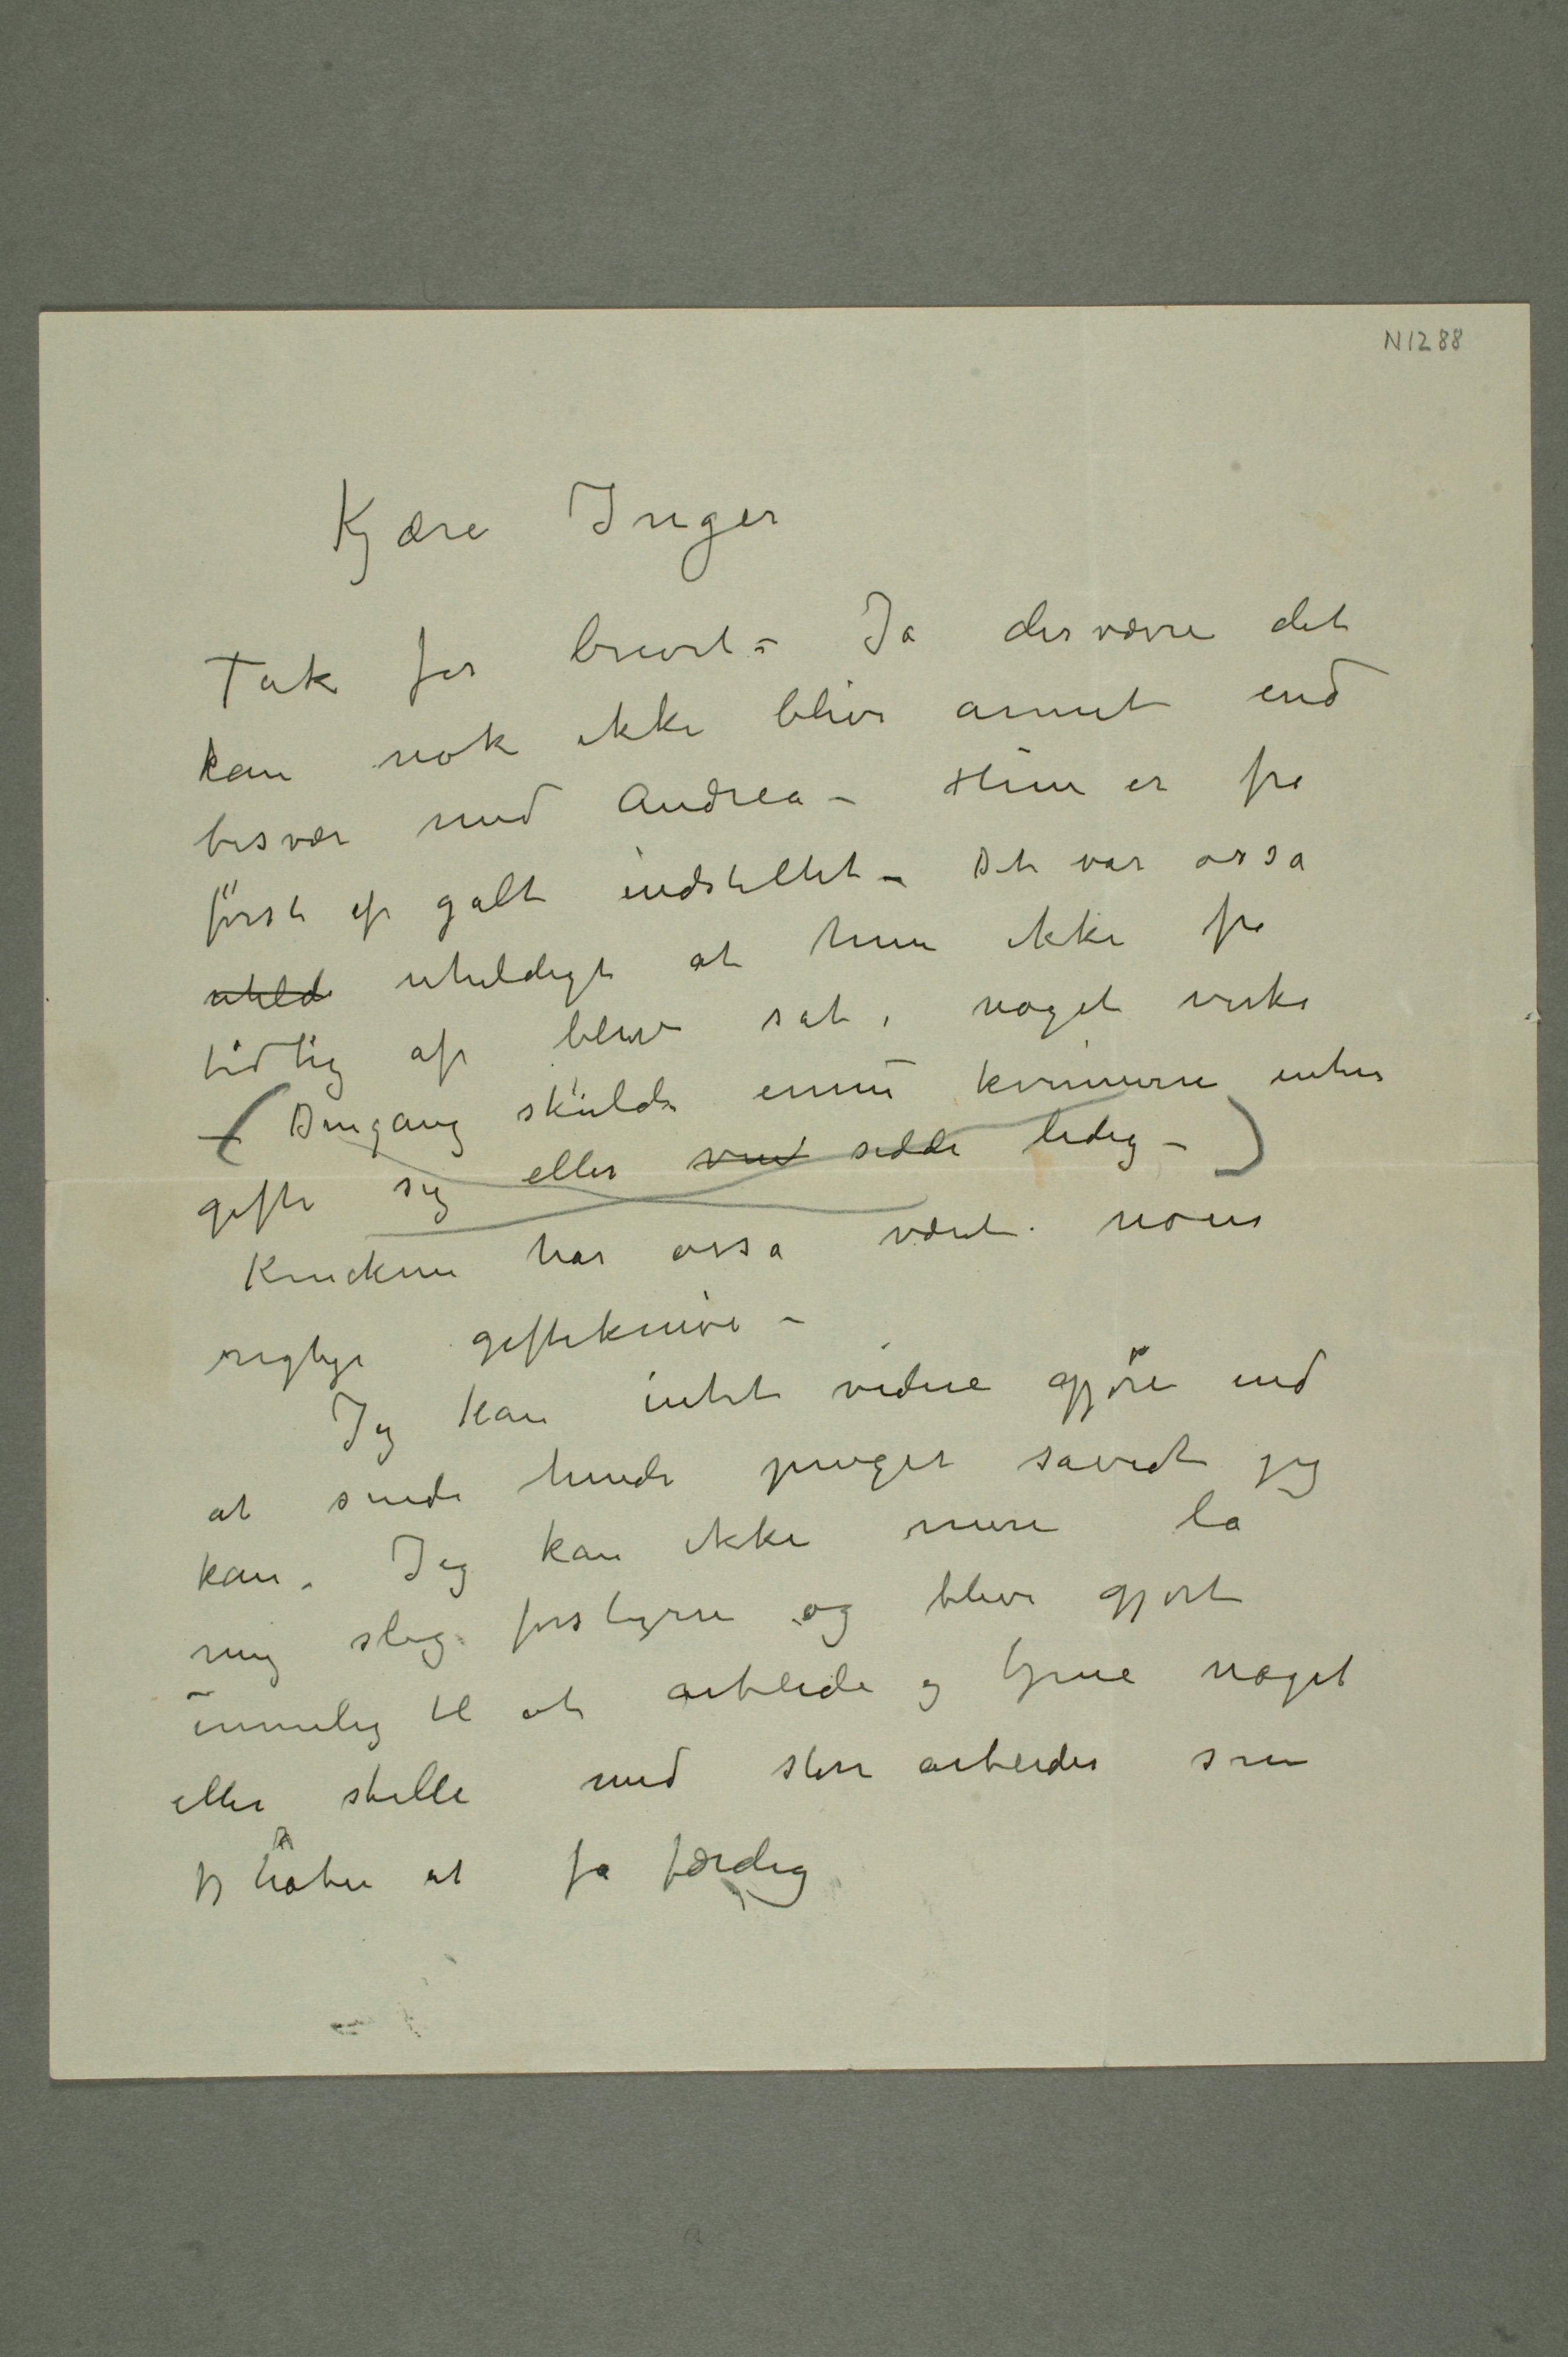 N1288
Kjære Inger
Tak for brevet – Ja desværre det
kan nok ikke blive annet end
besvær med Andrea – Hun er fra
först af galt indstillet – Det var ossa
uheld uheldigt at hun ikke fra
tidlig af blev sat i noget virke
– (Dengang skulde ennu kvinnerne enten
gifte sig eller sidde ledig – )
har ossa været noen
rigtige giftekniver –
Jeg kan intet videre gjöre end
at sende hende penger savidt jeg
kan. Jeg kan ikke mere la
mig slig forstyrre og blive gjort
umulig til at arbeide og tjene noget
eller stelle med store arbeider som
jeg håber at fa færdig